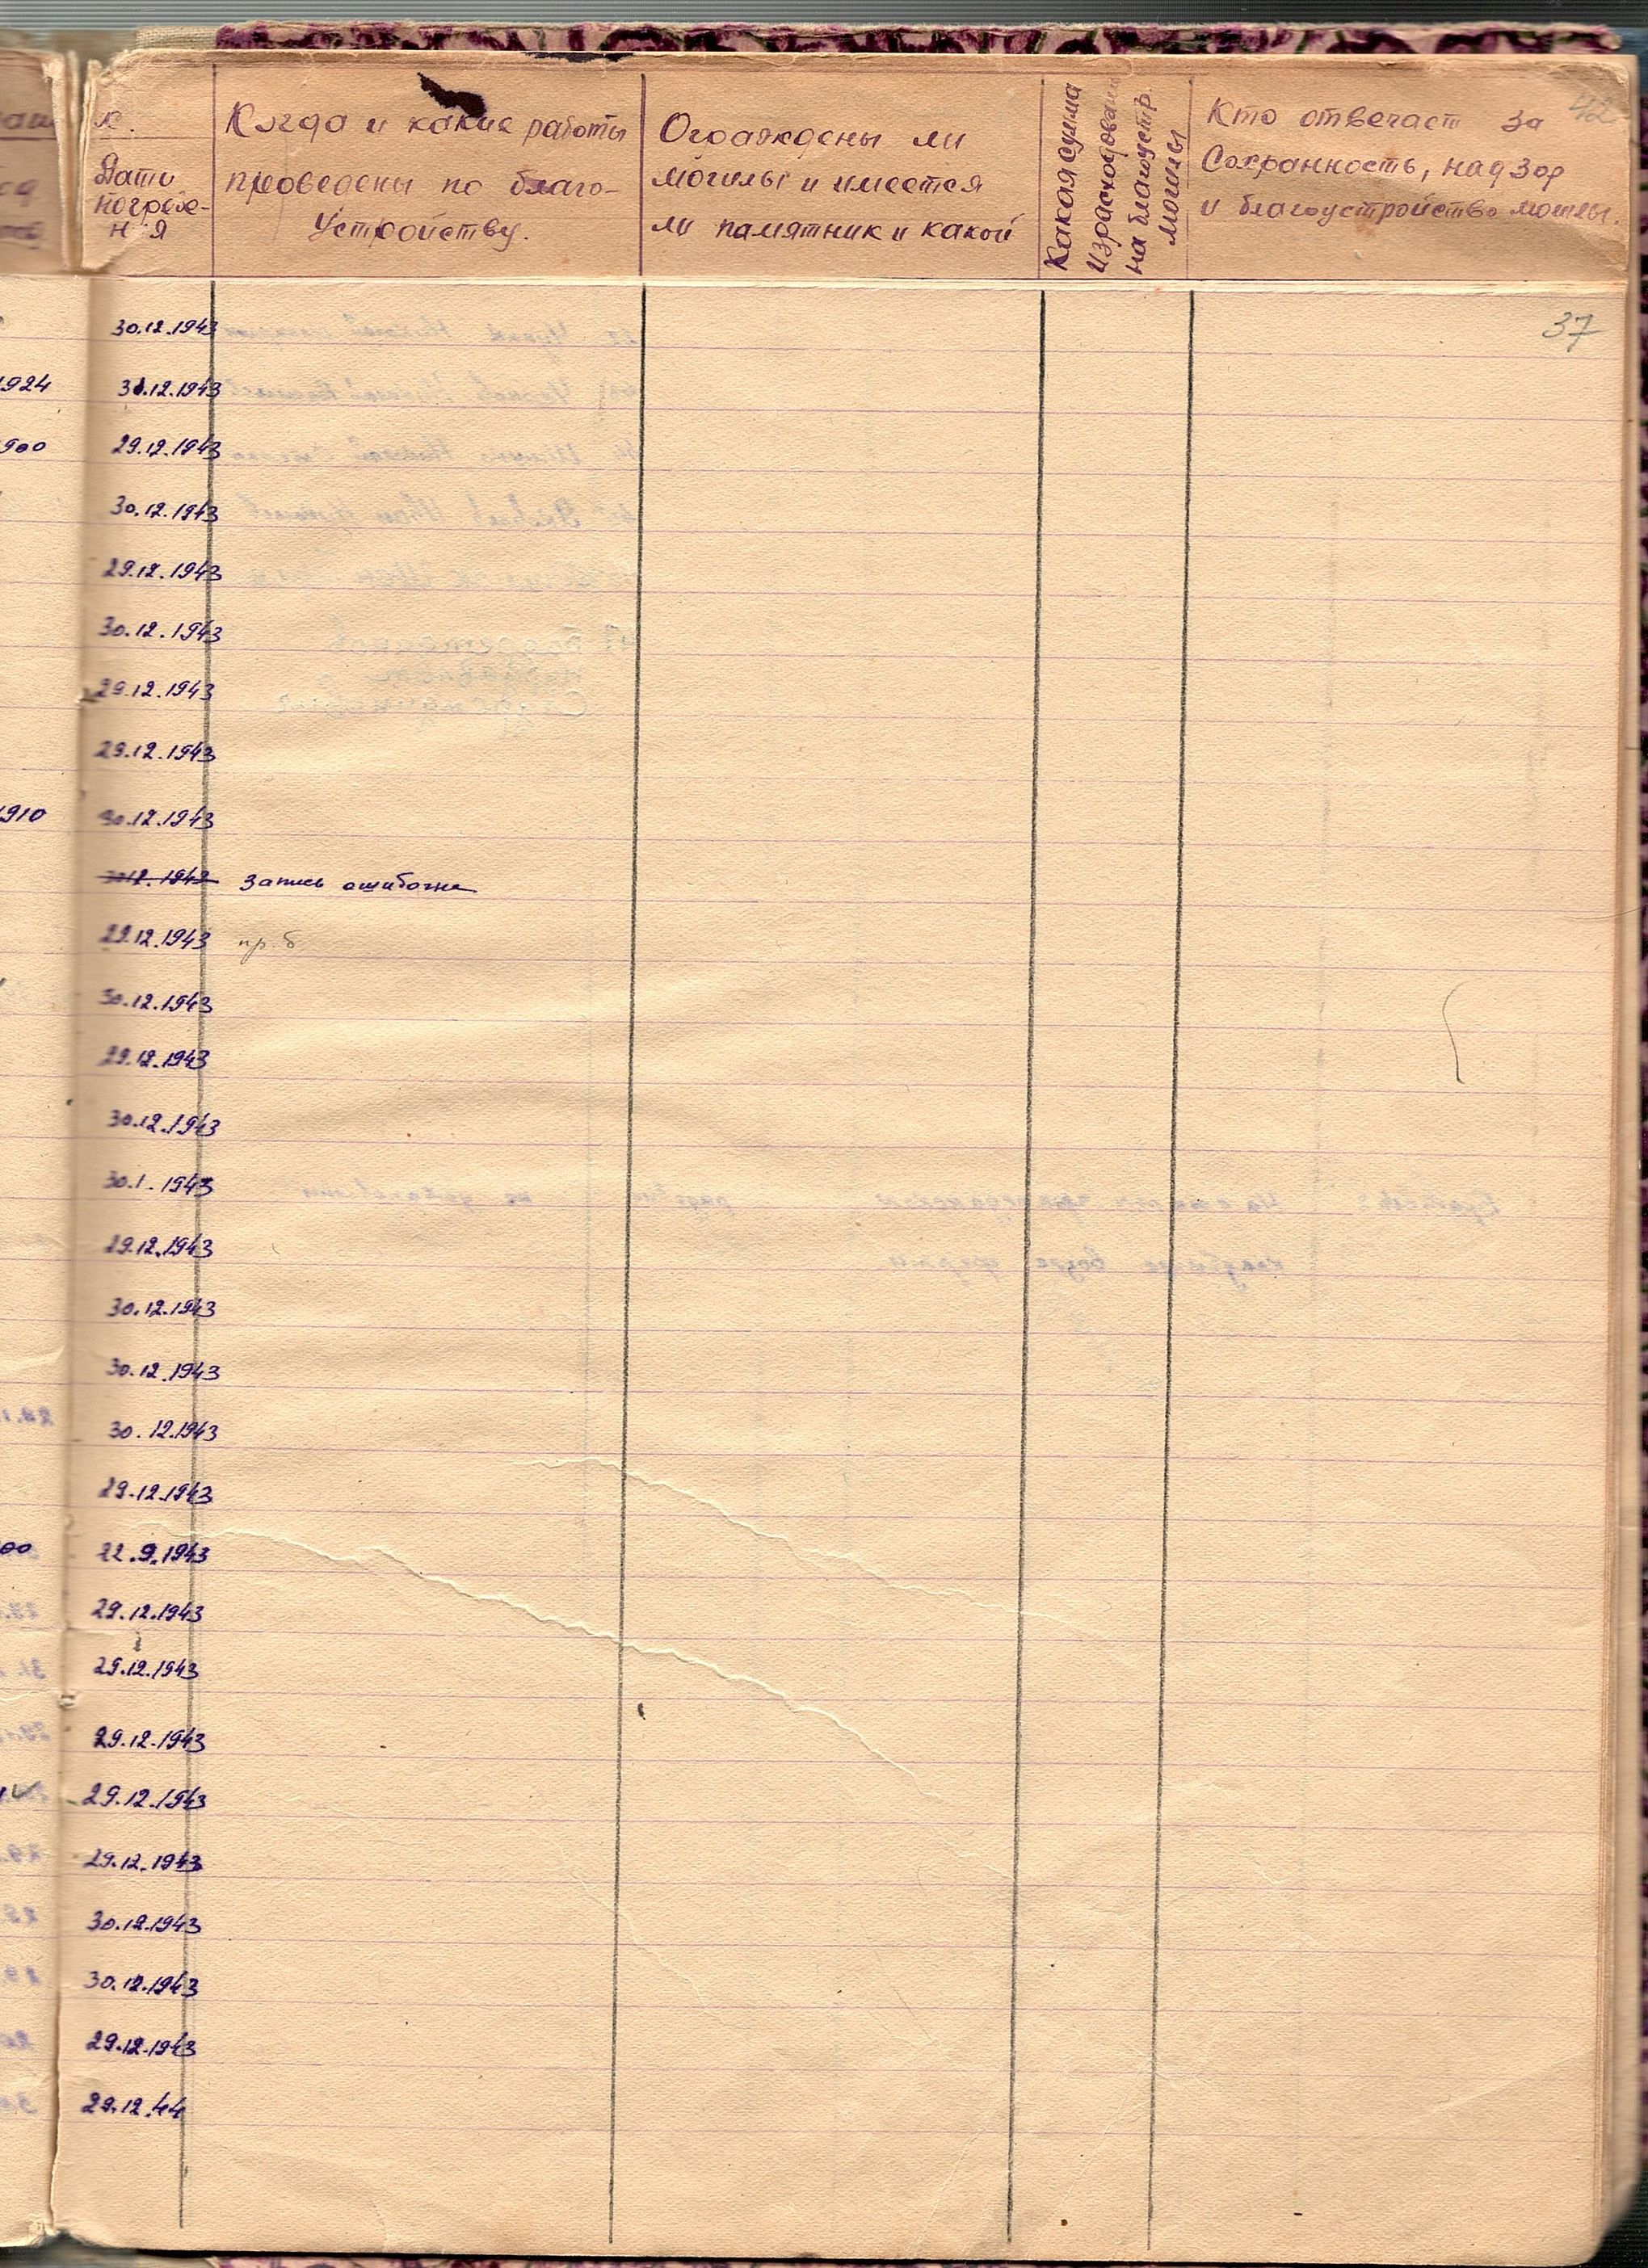 42
к.
Дата
погребе-
ния
Когда и какие работы
проведены по благо-
устройству.
Огорождены ли
могилы и имеется
ли памятник и какой
Какая сумма
израсходована
на благоустр.
могилы
Кто отвечает за
Сохранность, надзор
и благоустройство могилы.
37
30.12.1943
1924 31.12.1943
900 29.12.1943
30.12.1943
29.12.1943
30.12.1943
29.12.1943
29.12.1943
1910 30.12.1943
30.12.1942 запись ошибочна
29.12.1943 пр. б
30.12.1943
29.12.1943
30.12.1943
30.1.1943
29.12.1943
30.12.1943
30.12.1943
30.12.1943
29.12.1943
00 22.9.1943
29.12.1943
29.12.1943
29.12.1943
29.12.1943
29.12.1943
30.12.1943
30.12.1943
29.12.1943
29.12.44